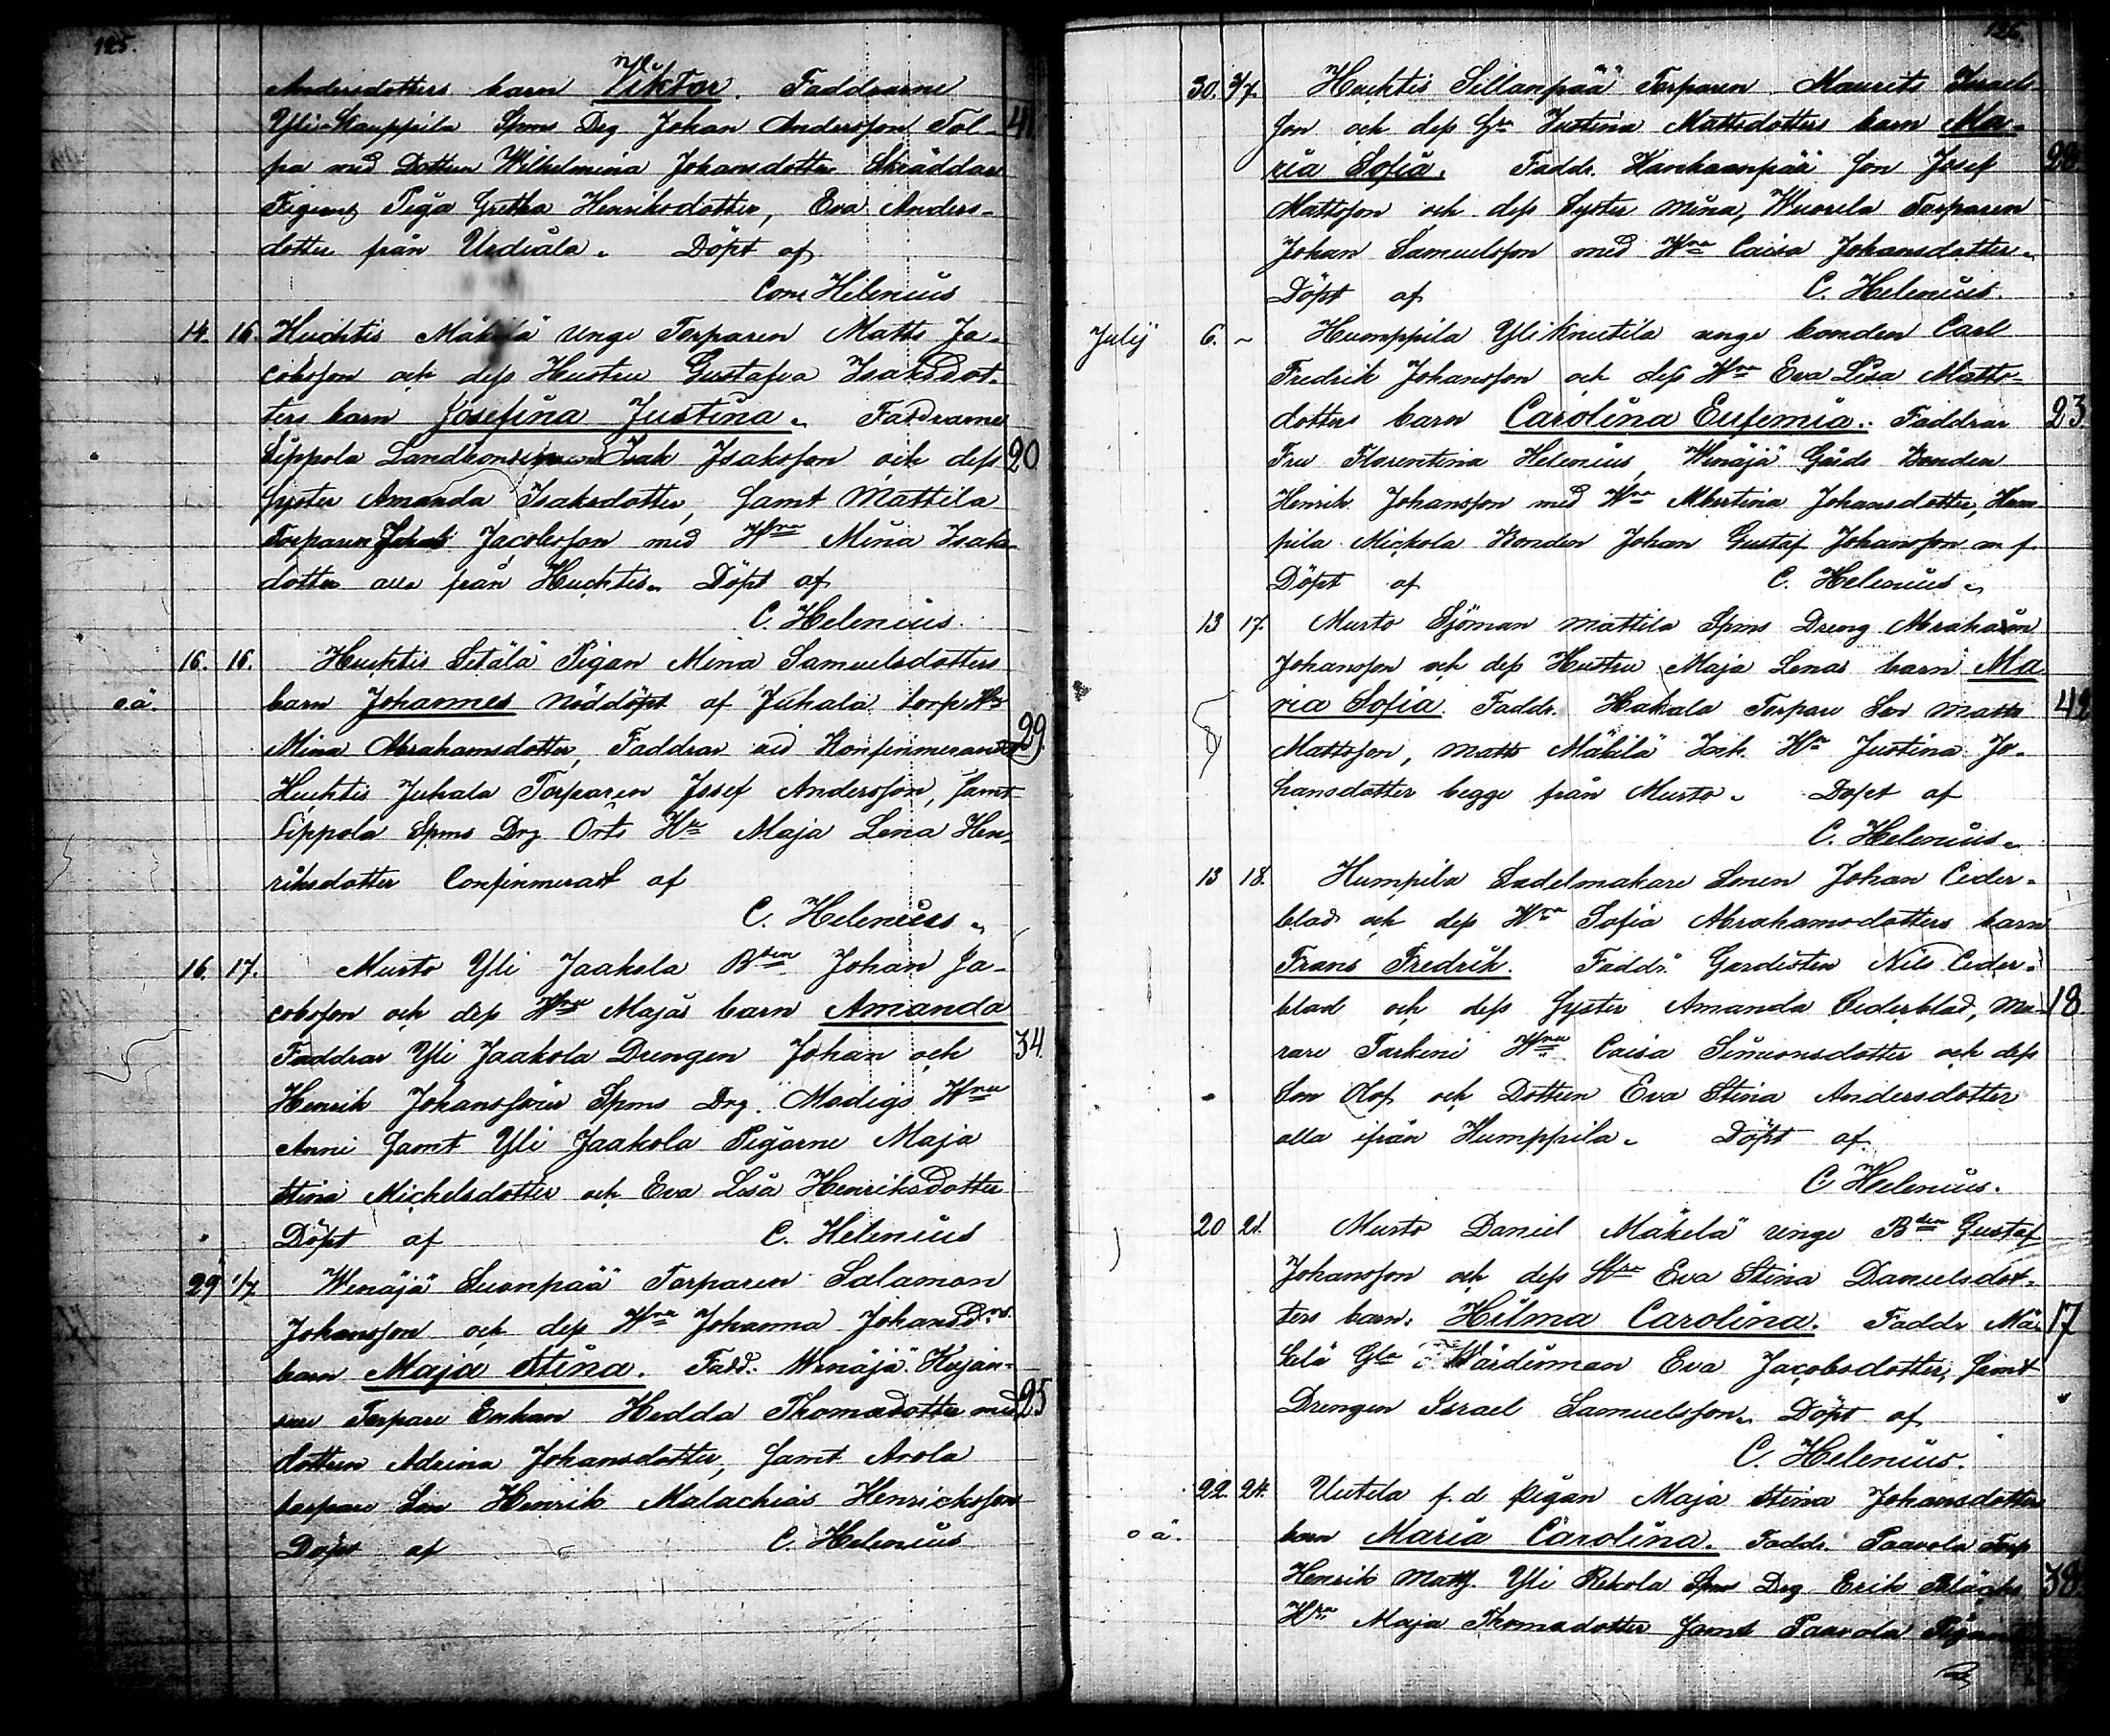 125.
Andersdotters barn Viktor. Faddrarne
Yli-Kauppila Spms Drg Johan Andersson Tol- 41
pa med Dottren Wilhelmina Johansdotter Skräddare
Piga Gretha Henriksdotter, Eva Anders-
dotter från Urdiala. Döpt af
Helenius
14. 16. Huchtis Mäkilä unge Torparen Matts Ja-
cobsson och dess Hustru Gustafva Isaksdot-
ters barn Josefina Justina. Faddrarne
Sippola Isak Isaksson och dess 20
Syster Amanda Isaksdotter, samt Mattila
Torparen Jacobsson med Hru Mina Isaks-
dotter alla från Huchtis. Döpt af
C. Helenius.
16. 16. Huchtis Setälä Pigan Mina Samuelsdotters
o.ä. barn Johannes nöddöpt af Juhala torp Hu
Mina Abrahamsdotter, Faddrar vid 29
Huchtis Juhala Torparen Josef Andersson, samt
Sippola Spms Drg Orts Hu Maja Lena Hen-
riksdotter af
C. Helenius.
16. 17. Murto Yli Jaakola Bden Johan Ja-
cobsson och dess Hru Majas barn Amanda
Faddrar Yli Jaakola Drengen Johan och 34.
Henrik Johanssöner Spms Drg. Modigs Hru
Anni samt Yli Jaakola Pigorne Maja
Stina Michelsdotter och Eva Lisa Henriksdotter
Döpt af C. Helenius
29 1/7 Wenäjä Suonpää Torparen Salamon
Johansson och dess Hru Johanna Johansd:rs
barn Maja Stina. Fadd. Wenäjä
Torpare Enkan Hedda Thomasdotter med 25
dottren Adrina Johansdotter, samt Arola
torpare Son Henrik Malachias Henricksson
Döpt af C. Helenius
126.
30. 4/7. Huchtis Sillanpää Torparen Maurits Israels-
son och dess Hu Justina Mattsdotters barn Ma-
ria Sofia. Faddr. Kankaanpää Son Josef 22.
Mattsson och dess Syster Mina, Wuorela Torparen
Johan Samuelsson med Hru Caisa Johansdotter.
Döpt af C. Helenius.
Julij 6. ~ Humppila Yli Knutila unge bonden Carl
Fredrik Johansson och dess Hru Eva Lisa Matts-
dotters barn Carolina Eufemia. Faddrar 23
Fru Florentina Helenius, Wenäjä Gårds Bonden
Henrik Johansson med Hru Albertina Johansdotter, Hum
pila Mickola Bonden Johan Gustaf Johansson m. f.
Döpt af C. Helenius.
13 17. Murto Sjöman Mattila Spms Dreng Abraham
Johansson och dess Hustru Maja Lenas barn Ma
ria Sofia. Faddr. Hakala Torpare Son Matts 42
Mattsson, Matts Mäkilä Hu Justina Jo-
hansdotter begge från Murto. Döpt af
C. Helenius.
13 18. Humpila Sadelmakare Sonen Johan Ceder-
blad och dess Hru Sofia Abrahamsdotters barn
Frans Fredrik. Faddr. Gardisten Nils Ceder-
blad och dess Syster Amanda Cederblad, Mu- 18
rare Hru Caisa Simonsdotter och dess
Son Olof och Dottren Eva Stina Andersdotter
alla ifrån Humppila. Döpt af
C Helenius.
20 21. Murto Daniel Mäkelä unge Bden Gustaf
Johansson och dess Hru Eva Stina Danielsdot-
ters barn. Hilma Carolina. Faddr Mä- 17
kelä Gla Wärdinnan Eva Jacobsdotter, samt
Drengen Israel Samuelsson. Döpt af
C. Helenius.
22. 24. Uutela f. d. pigan Maja Stina Johansdotters
o ä. barn Maria Carolina. Faddr. Paavola Torp
Henrik Matts. Yli Rekola Spms Drg Erik 38.
Hru Maja Thomasdotter samt Paavola